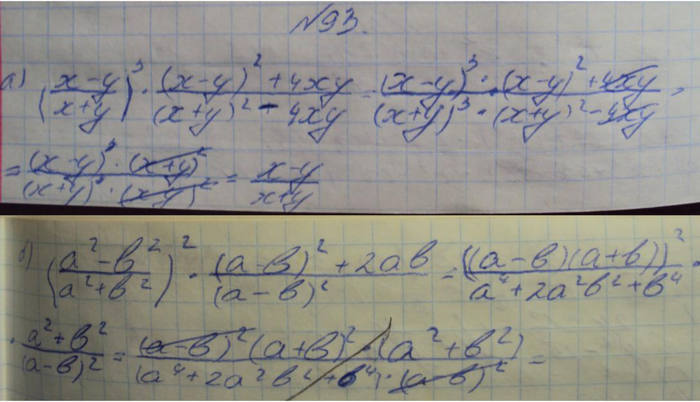 №93.
а) (x-y/x+y)³ · (x-y)²+4xy/(x+y)²-4xy = (x-y)³·(x-y)²+4xy/(x+y)³·(x+y)²-4xy =
= (x-y)³·(x+y)²/(x+y)³·(x-y)² = x-y/x+y
б) (a²-b²/a²+b²)² · (a-b)²+2ab/(a-b)² = ((a-b)(a+b))²/a⁴+2a²b²+b⁴ ·
· a²+b²/(a-b)² = (a-b)²(a+b)²·(a²+b²)/(a⁴+2a²b²+b⁴)·(a-b)² =